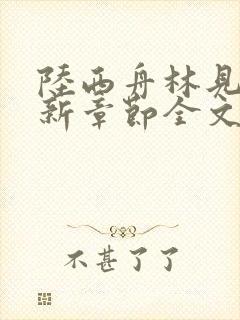 陸西舟林見
新章節全文
不甚了了